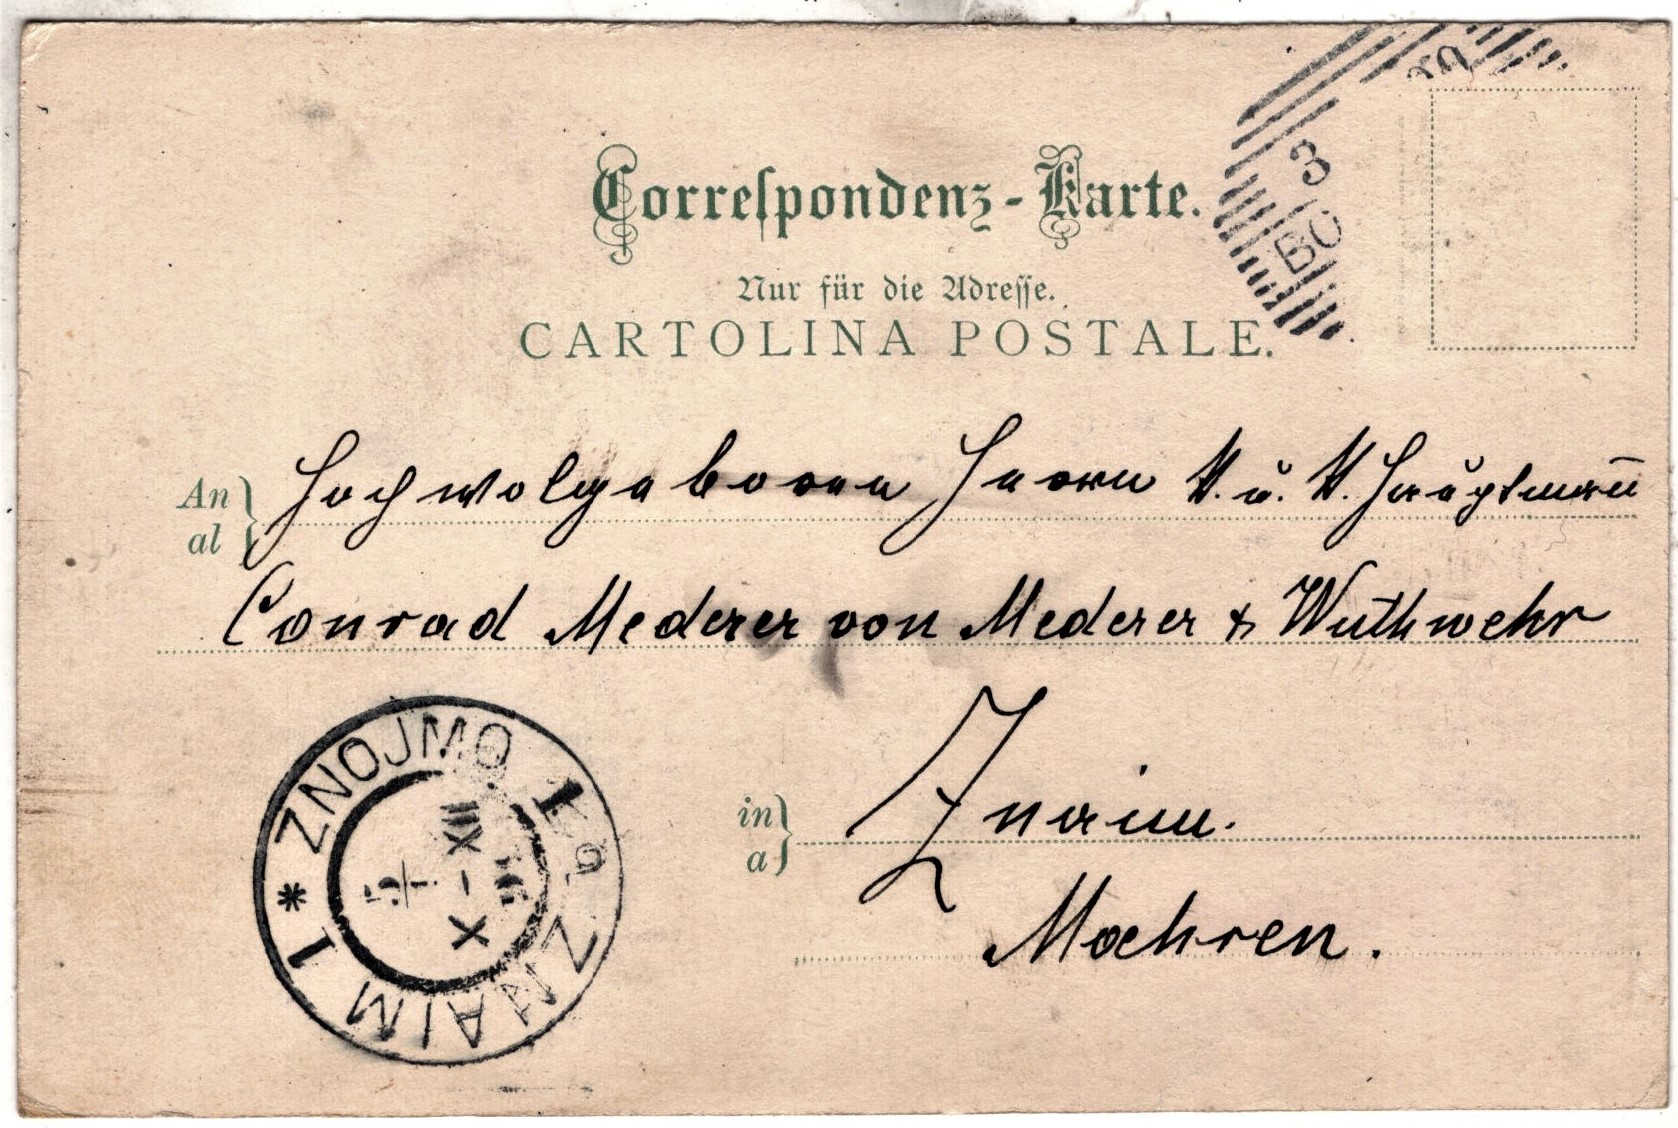 Correspondenz-Karte.
Nur für die Adresse.
CARTOLINA POSTALE.
3
BO
An
al
Hochwolgeboren Herrn K. u. K. Hauptmann
Conrad Mederer von Mederer & Wuthwehr
in
a
Znaim.
Maehren.
ZNOJMO 1
ZNAIM 1
5/1
X-XII